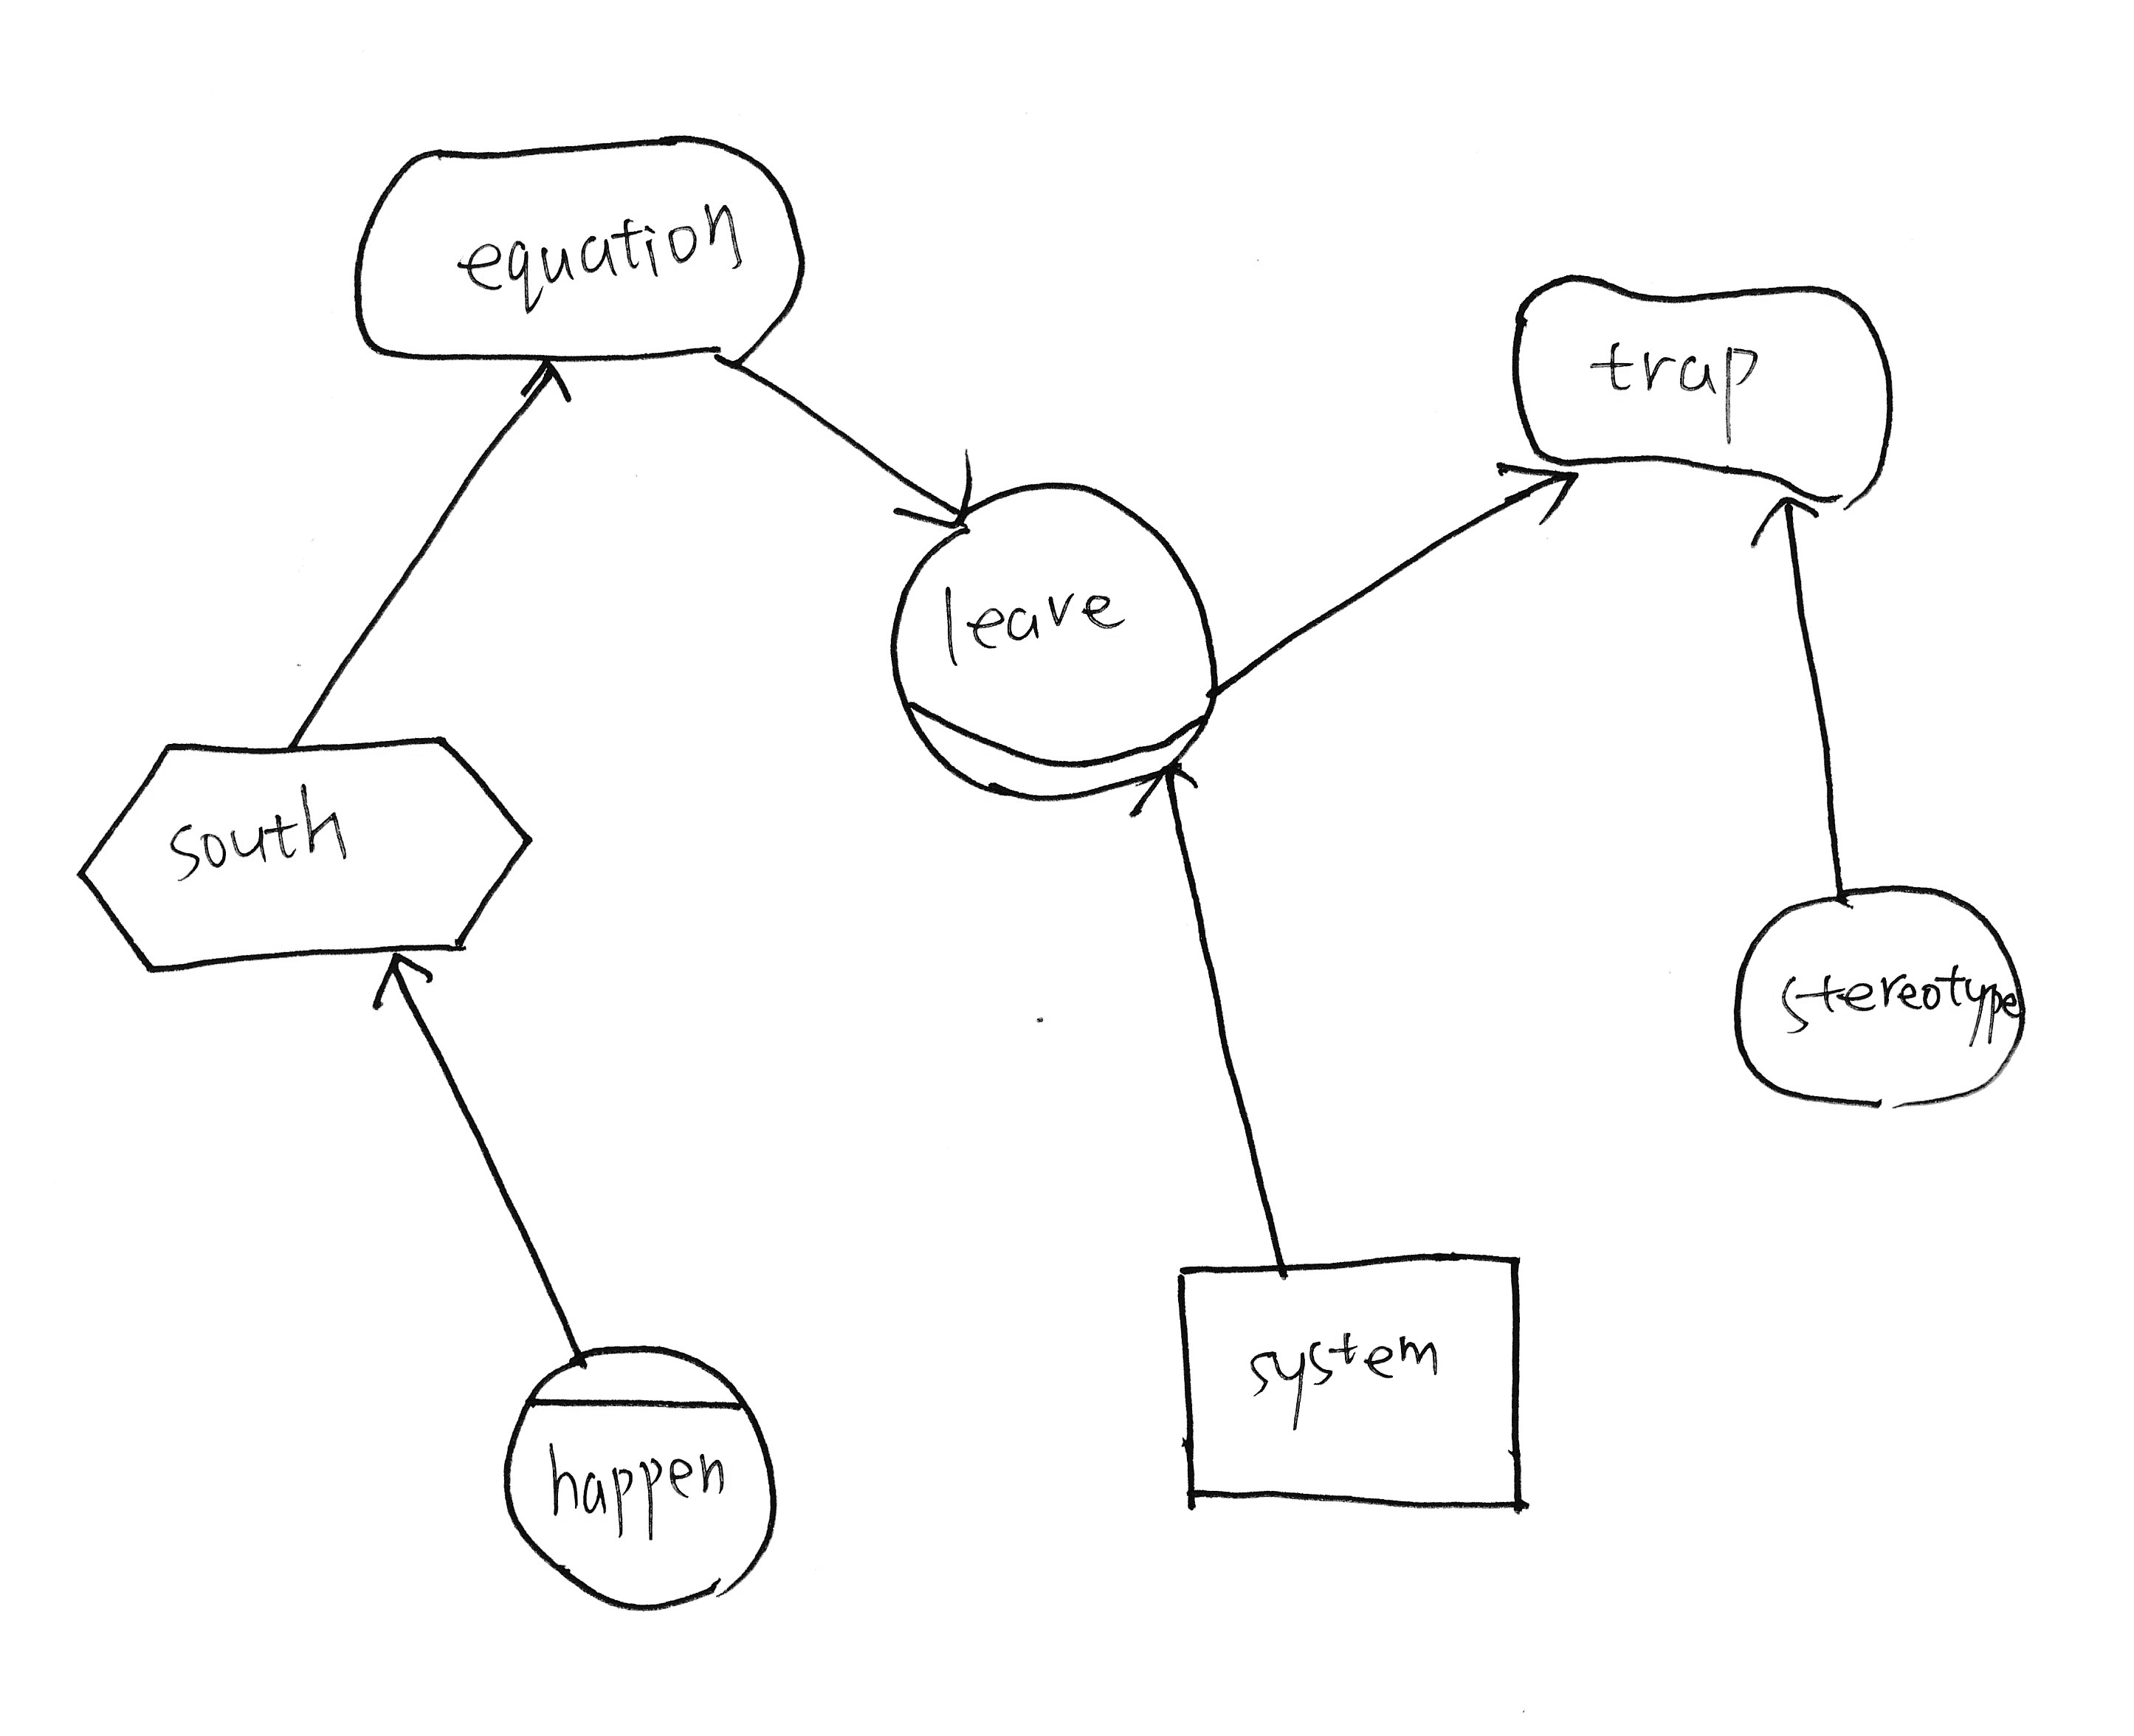 equation
trap
leave
south
stereotype
system
happen